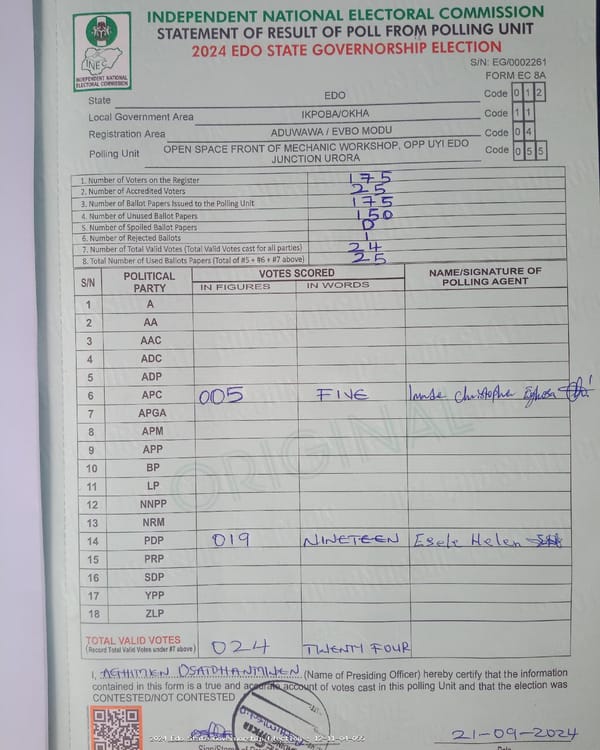 INDEPENDENT NATIONAL ELECTORAL COMMISSION
STATEMENT OF RESULT OF POLL FROM POLLING UNIT
2024 EDO STATE GOVERNORSHIP ELECTION
INEC
INDEPENDENT NATIONAL ELECTORAL COMMISSION
S/N: EG/0002261
FORM EC 8A
State EDO Code 0 1 2
Local Government Area IKPOBA/OKHA Code 1 1
Registration Area ADUWAWA / EVBO MODU Code 0 4
Polling Unit OPEN SPACE FRONT OF MECHANIC WORKSHOP, OPP UYI EDO JUNCTION URORA Code 0 5 5
1. Number of Voters on the Register 175
2. Number of Accredited Voters 25
3. Number of Ballot Papers Issued to the Polling Unit 175
4. Number of Unused Ballot Papers 150
5. Number of Spoiled Ballot Papers 0
6. Number of Rejected Ballots 1
7. Number of Total Valid Votes (Total Valid Votes cast for all parties) 24
8. Total Number of Used Ballots Papers (Total of #5 + #6 + #7 above) 25
S/N POLITICAL PARTY VOTES SCORED NAME/SIGNATURE OF POLLING AGENT
IN FIGURES IN WORDS
1 A
2 AA
3 AAC
4 ADC
5 ADP
6 APC 005 FIVE Christopher
7 APGA
8 APM
9 APP
10 BP
11 LP
12 NNPP
13 NRM
14 PDP 019 NINETEEN Esele Helen
15 PRP
16 SDP
17 YPP
18 ZLP
ORIGINAL
TOTAL VALID VOTES
(Record Total Valid Votes under #7 above) 024 TWENTY FOUR
I, (Name of Presiding Officer) hereby certify that the information
contained in this form is a true and accurate account of votes cast in this polling Unit and that the election was
CONTESTED/NOT CONTESTED
21-09-2024
Date